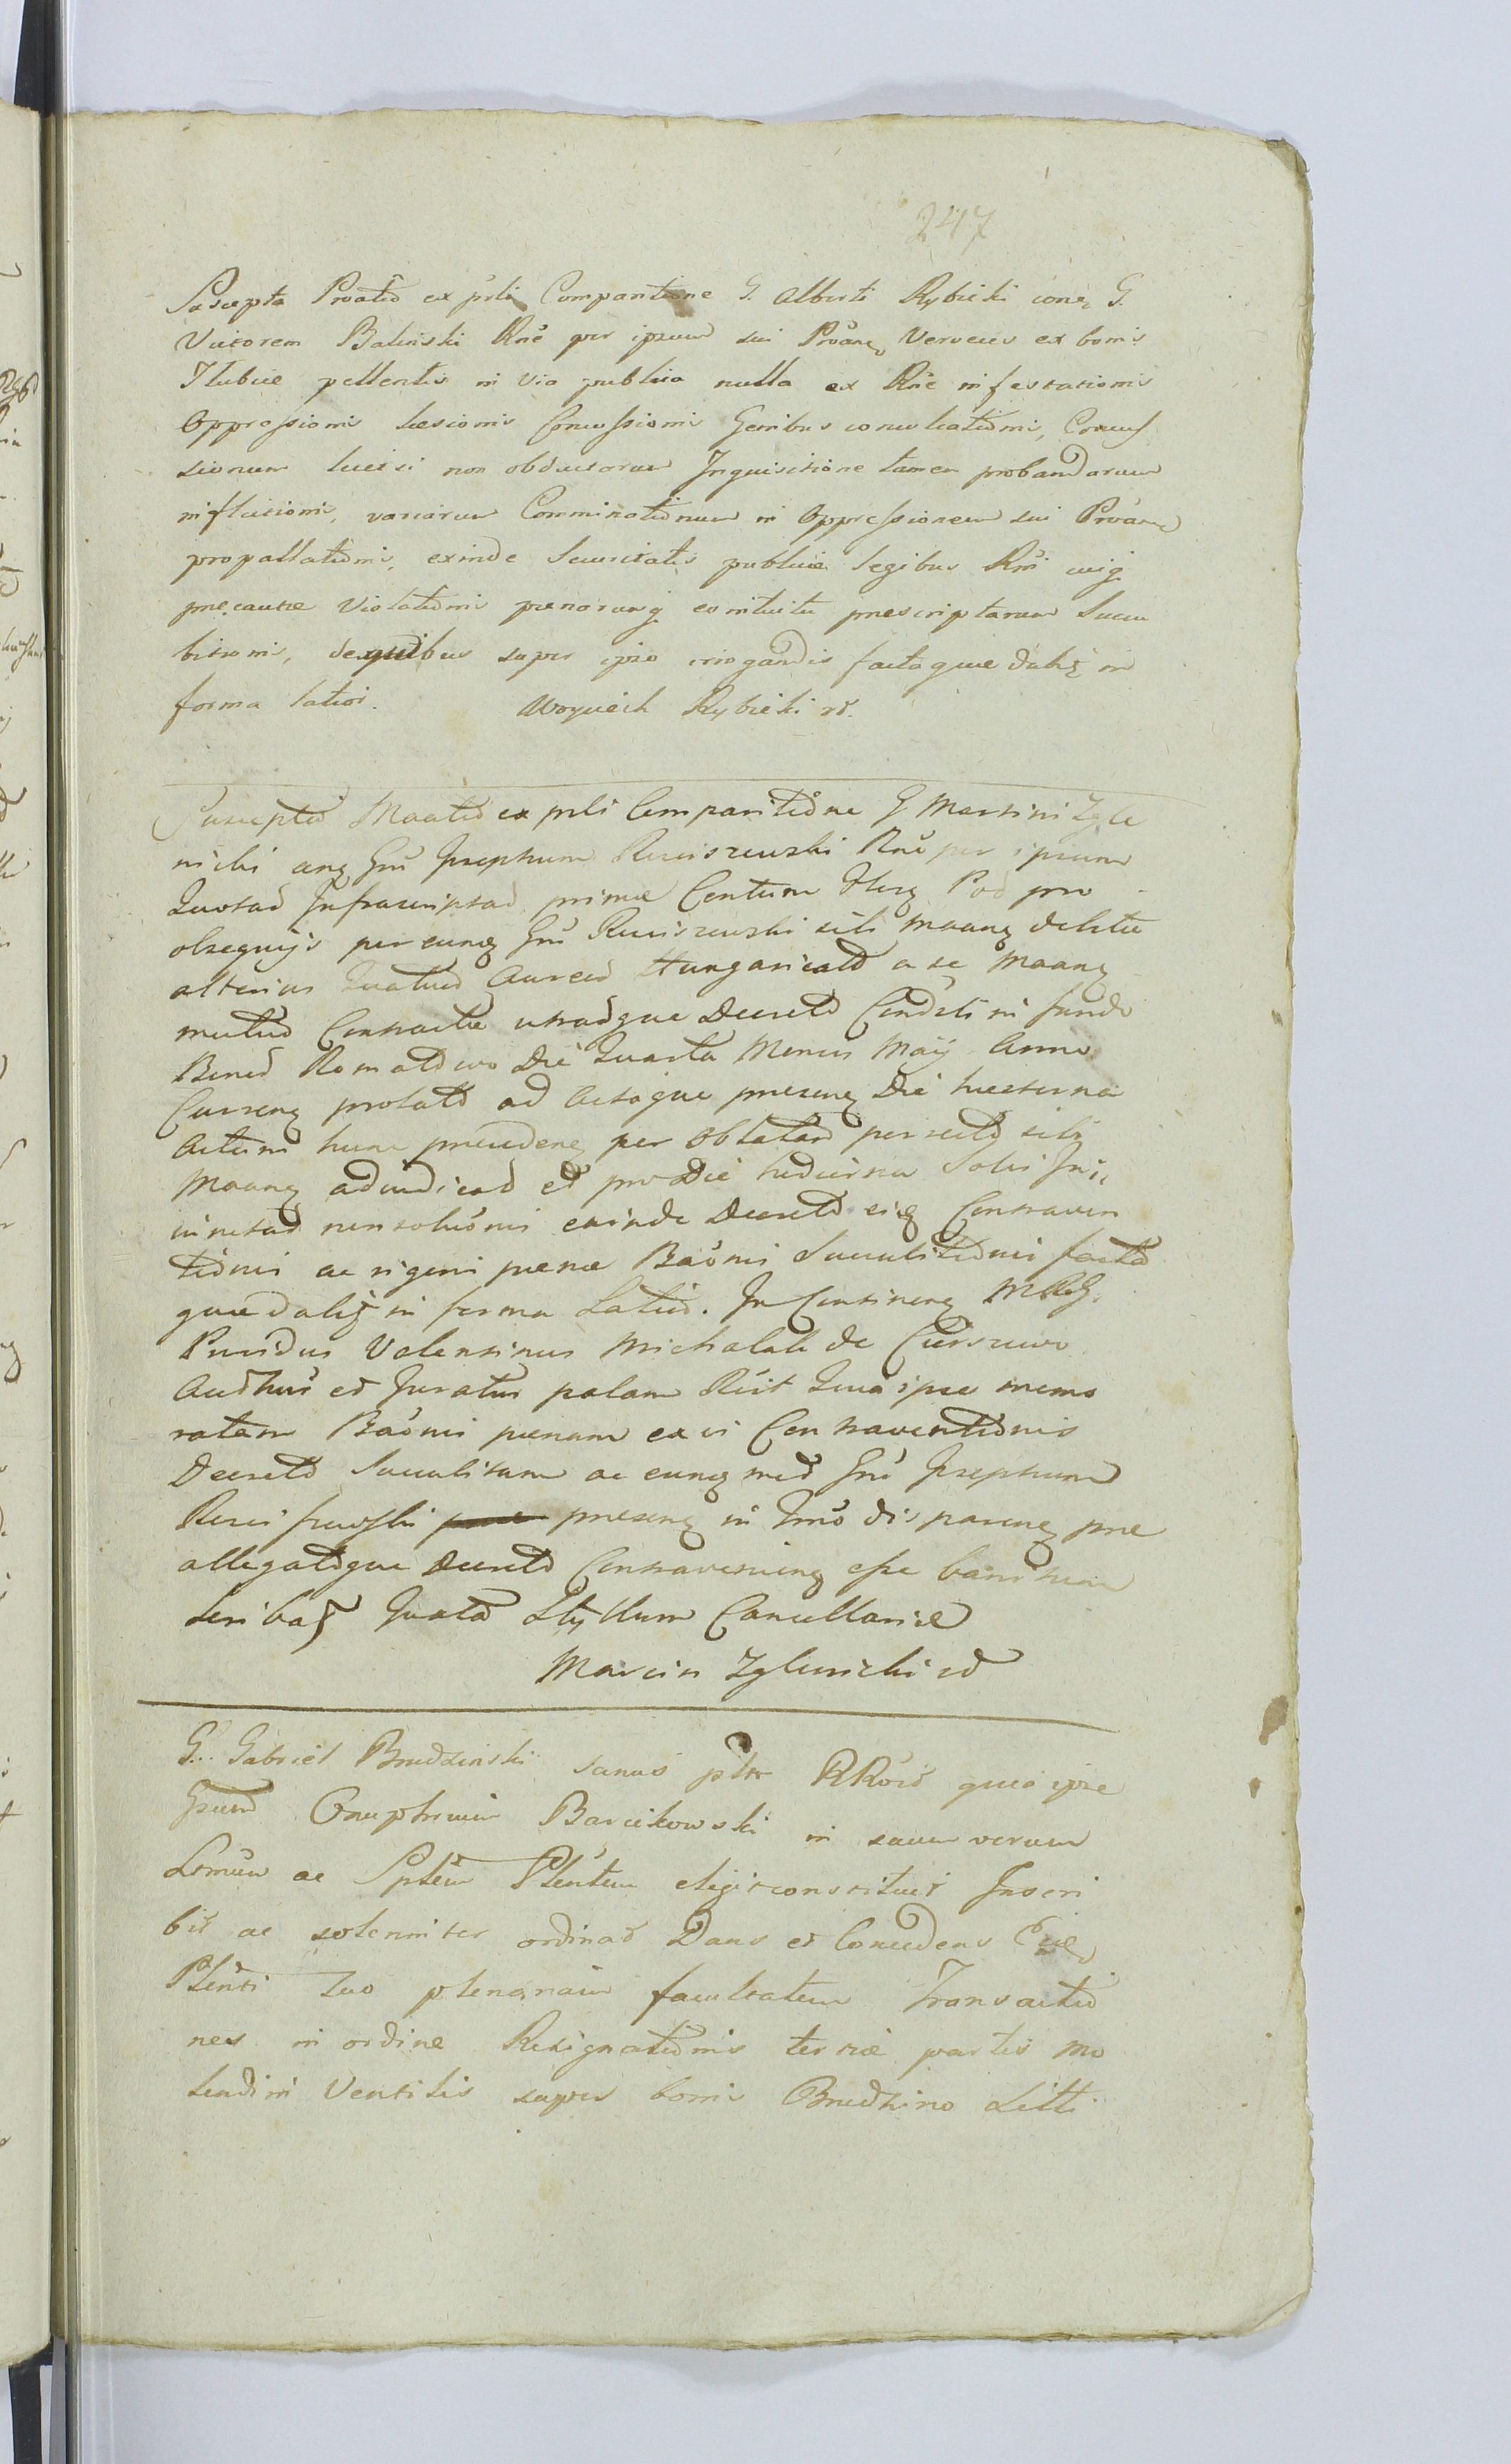 247
Suscepta Protio ex psli Comparitione G. Alberti Rybicki conq G.
Victorem Balinski Rne per ipsum sui Proanq Verveces ex bonis
Hubice pellentis in via publica nulla ex Rne infestationis
Oppressionis Læsionis Concussionis Genibus conculcationis, Concus
sionum licet si non obductarum Inquisitione tamen probandarum
inflictionis, variarum Comminationum in Oppressionem sui Proanq
propallationis, exinde Securitatis publicæ legibus Rni cuiq
præcautæ Violationis pænarumq eo intuitu præscriptarum Succu
bitionis, de quibus super ipso irrogandis facta quæ dabit in
forma latiori. Woyciech Rybicki
Suscepta Maatio ex psli Comparitione G Martini Zgle
nicki anq Gnu Josephum Ruciszewski Rne per ipsum
Quotas Infrascriptas primæ Centum flor Pol pro
obsequijs per eunq Gnu Ruciszewski sibi Maanq debitæ
alterius Quatuor Aureos Hungaricales a se Maanq
mutuo Contractæ utrasque Decreto Condsli in fundo
Bonor Romatowo Die Quarta Mensis Maij Anno
Currenq prolato ad Actaque præsenq Die hesterna
Actum hunc præcedenq per Oblatam porrecto sibi
Maanq adiudicatas et pro Die hodierna Solvi In
iunctas non solutionis exinde Decreto eiq Contraven
tionis ac rigori pænæ Baonis Succubitionis facta
quæ dabit in forma Latiori. In Continenq MRG.
Providus Valentinus Michalak de Cierszewo
Aud hus et Juratus palam Rcit Quia ipse memo
ratam Baonis pænam ex vi Contraventionis
Decreto Succubitam ac eunq mod Gnu Josephum
Ruciszewski præsenq in Jmo disparenq præ
allegatoque Decreto Contravenienq esse banitum
scribat Juxta Styllum Cancellariæ
Marcin Zglenicki
G. Gabriel Brudzinski sanus pltr RRovit quia ipse
Gsum Onuphrium Barcikowski in suum verum
Lgmum ac Splem Plentem eligit constituit Inscri
bit ac solenniter ordinat Dans et Concedens Eid
Plenti suo plenariam facultatem Transactio
nes in ordine Resignationis tertiæ partis mo
lendini Ventilis super bonis Brudzino Litt.